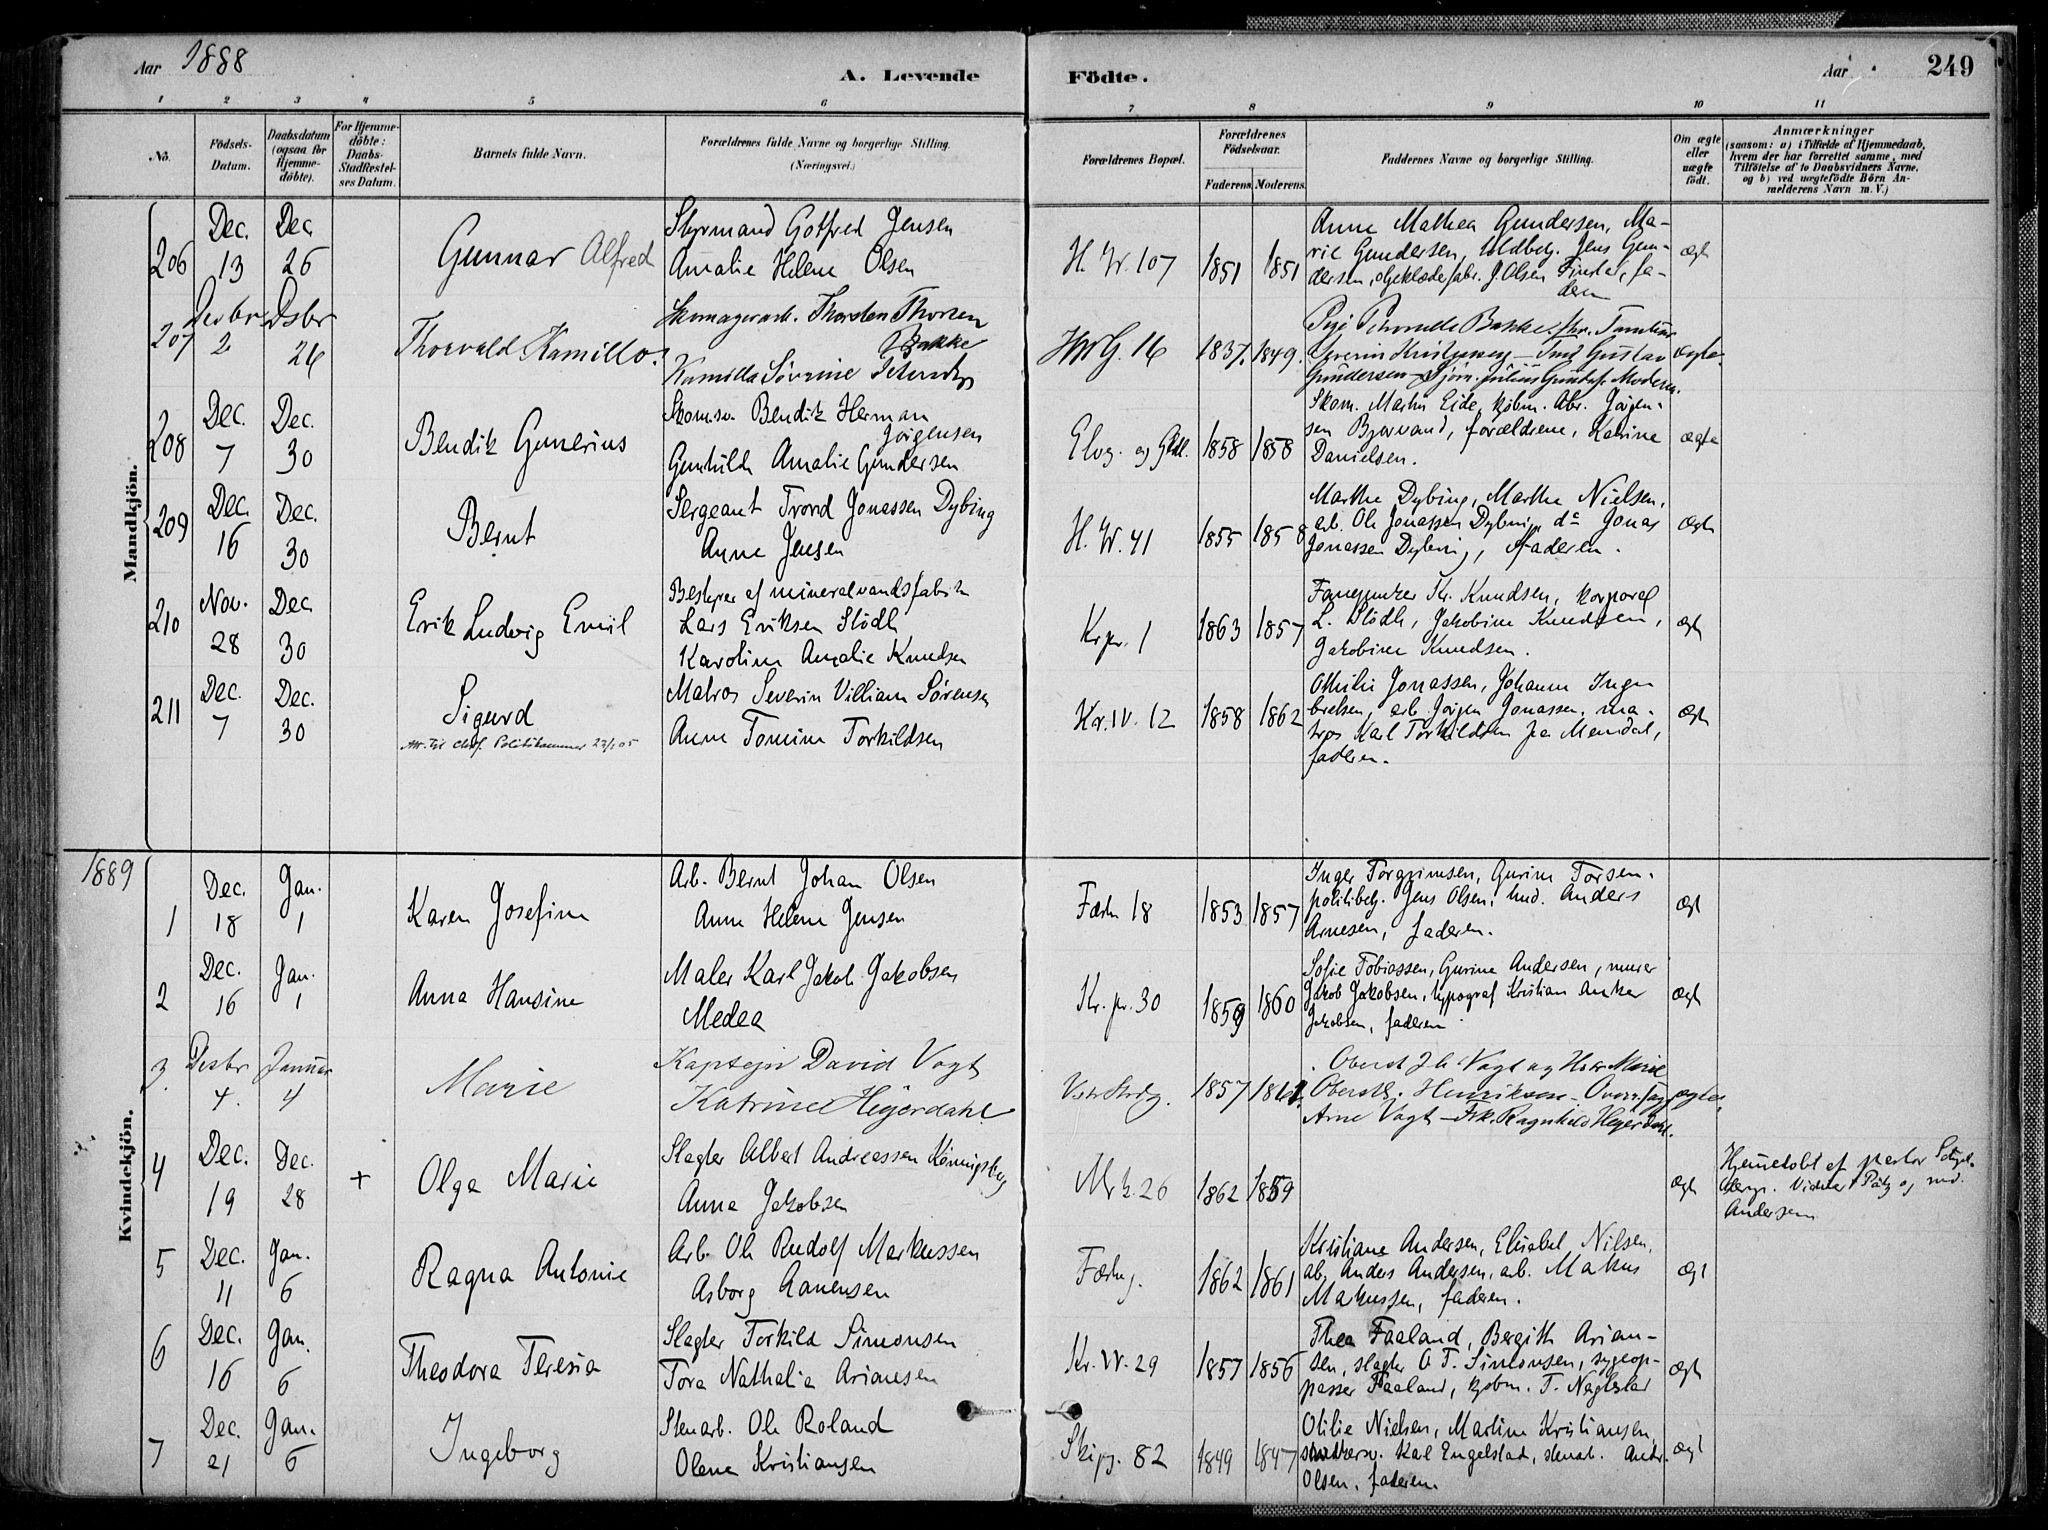 Aar 1888
A. Levende
Födte.
Aar
249
1 2 3 4 5 6 7 8 9 10 11
No.
Födsels-
Datum.
Daabsdatum
(ogsaa for
Hjemme-
döbte).
For Hjemme-
döbte:
Daabs-
Stadfæstel-
ses Datum.
Barnets fulde Navn.
Forældrenes fulde Navne og borgerlige Stilling.
(Næringsvei.)
Forældrenes Bopæl.
Forældrenes
Födselsaar.
Faderens Moderens
Faddernes Navne og borgerlige Stilling.
Om ægte
eller
uægte
födt.
Anmærkninger
(saasom: a) i Tilfælde af Hjemmedaab,
hvem der har forrettet samme, med
Tilföielse af to Daabsvidners Navne,
og b) ved uægtefödte Börn An-
melderens Navn m. V.)
Mandkjön.
206
Dec. 13
Dec 26
Gunnar Alfred
Styrmand Gotfred Jensen
Amalie Helene Olsen
H. W. 107
1851 1851
Anne Mathea Gundersen, Ma-
rie Gundersen, Jens Gun-
dersen, oljeklædefabr. J. Olsen Findal, fa-
deren
ægt
207
Desbr 2
Dsbr 26
Thorvald Kamillo.
Skomagerarb. Thorsten Thorsen
Bakke
Kamilla Sövrine Petersdtr
16
1837. 1849.
Pige Bakke
Severin Kristensen — Gustav
Gundersen — Julius Gustafs. Moderen.
ægte.
208
Dec. 7
Dec. 30
Bendik Gunerius
Skomsv. Bendik Herman
Jörgensen
Gunhilde Amalie Gundersen
Elvg. og Gldl.
1858 1858
Skom. Martin Eide, kjöbm. Abr. Jörgen-
sen Bjorvand, forældrene, Katrine
Danielsen.
ægte
209
Dec. 16
Dec. 30
Bernt
Sergeant Trond Jonassen Dybing
Anne Jensen
H. W. 41
1855 1858
Marthe Dybing, Marthe Nielsen,
arb. Ole Jonassen Dybing, do Jonas
Jonassen Dybing, faderen.
ægte
210
Nov. 28
Dec 30
Erik Ludvig Emil
Bestyrer af mineralvandsfabrik
Lars Eriksen Slödh
Karoline Amalie Knudsen
Kr.pr. 1
1863 1857
Fanejunker Kr. Knudsen, korporal
L. Slödh, Jakobine Knudsen,
Jakobine Knudsen.
ægt
211
Dec. 7
Dec. 30
Sigurd
Att. til Politikammer 23/1 05
Matros Severin Villiam Sörensen
Anne Tomine Torkildsen
Kr. W. 12
1858 1862
Othilie Jonassen, Johanne Inge-
bretsen, arb. Jörgen Jonassen, ma-
tros Karl Torkildsen fra Mandal,
faderen.
ægte
1889
Kvindekjön.
1
Dec. 18
Jan. 1
Karen Josefine
Arb. Bernt Johan Olsen
Anne Helene Jensen
18
1853 1857
Inger Torgrimsen, Gurine Torsen,
politibetj. Jens Olsen, Anders
Arnesen, faderen.
ægt
2
Dec. 16
Jan. 1
Anna Hansine
Maler Karl Jakob Jakobsen
Medea
Kr. pr. 30
1859 1860
Sofie Tobiassen, Gurine Andersen, murer
Jakob Jakobsen, typograf Kristian Anker
Jakobsen, faderen
ægt
3.
Desbr 4.
Januar 4
Marie
Kaptejn David Vogt
Katrine Heyerdahl
1857 1861.
Oberst Vogt og Hstr Marie
Henriksen —
Arne Vogt — Frk. Ragnhild Heyerdahl.
ægte,
4
Dec. 19
Dec. 28
+
Olga Marie
Slagter Albert Andreassen Königsberg
Anna Jakobsen
26
1862 1859
ægt
Hjemmedöbt af pastor
Vidner: Pätz og
Andersen
5
Dec. 11
Jan. 6
Ragna Antonie
Arb. Ole Rudolf Markussen
Asborg Aanensen
1862 1861
Kristiane Andersen, Elisabet Nilsen,
arb. Anders Andersen, arb. Markus
Markussen, faderen.
ægt
6
Dec. 16
Jan. 6
Theodora Teresia
Slagter Torkild Simonsen
Tora Nathalia Ariansen
Kr. W. 29
1857 1856
Thea Faaland, Bergith Arian-
sen, slagter O T. Simonsen, sygeop-
passer Faaland, kjöbm. T. Naglestad
ægt
7
Dec. 21
Jan. 6
Ingeborg
Stenarb. Ole Roland
Olene Kristiansen
Skipg. 82
1849 1847
Otilie Nielsen, Martine Kristiansen,
Karl Engelstad, stenarb. Andr.
Olsen, faderen.
ægt